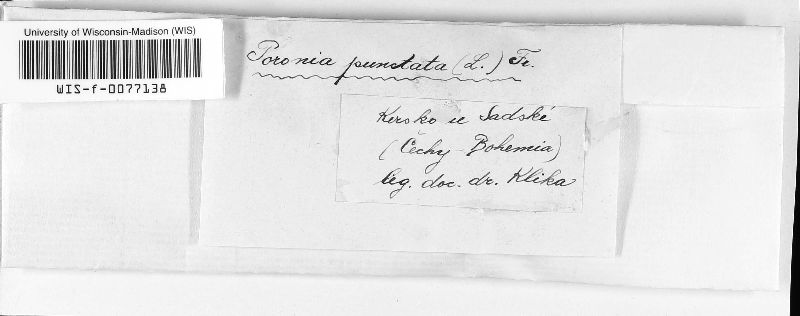 University of Wisconsin-Madison (WIS)
WIS-f-0077138
Poronia punctata (L.) Fr.
Kersko u Sadské
(Čechy - Bohemia)
leg. doc. dr. Klika